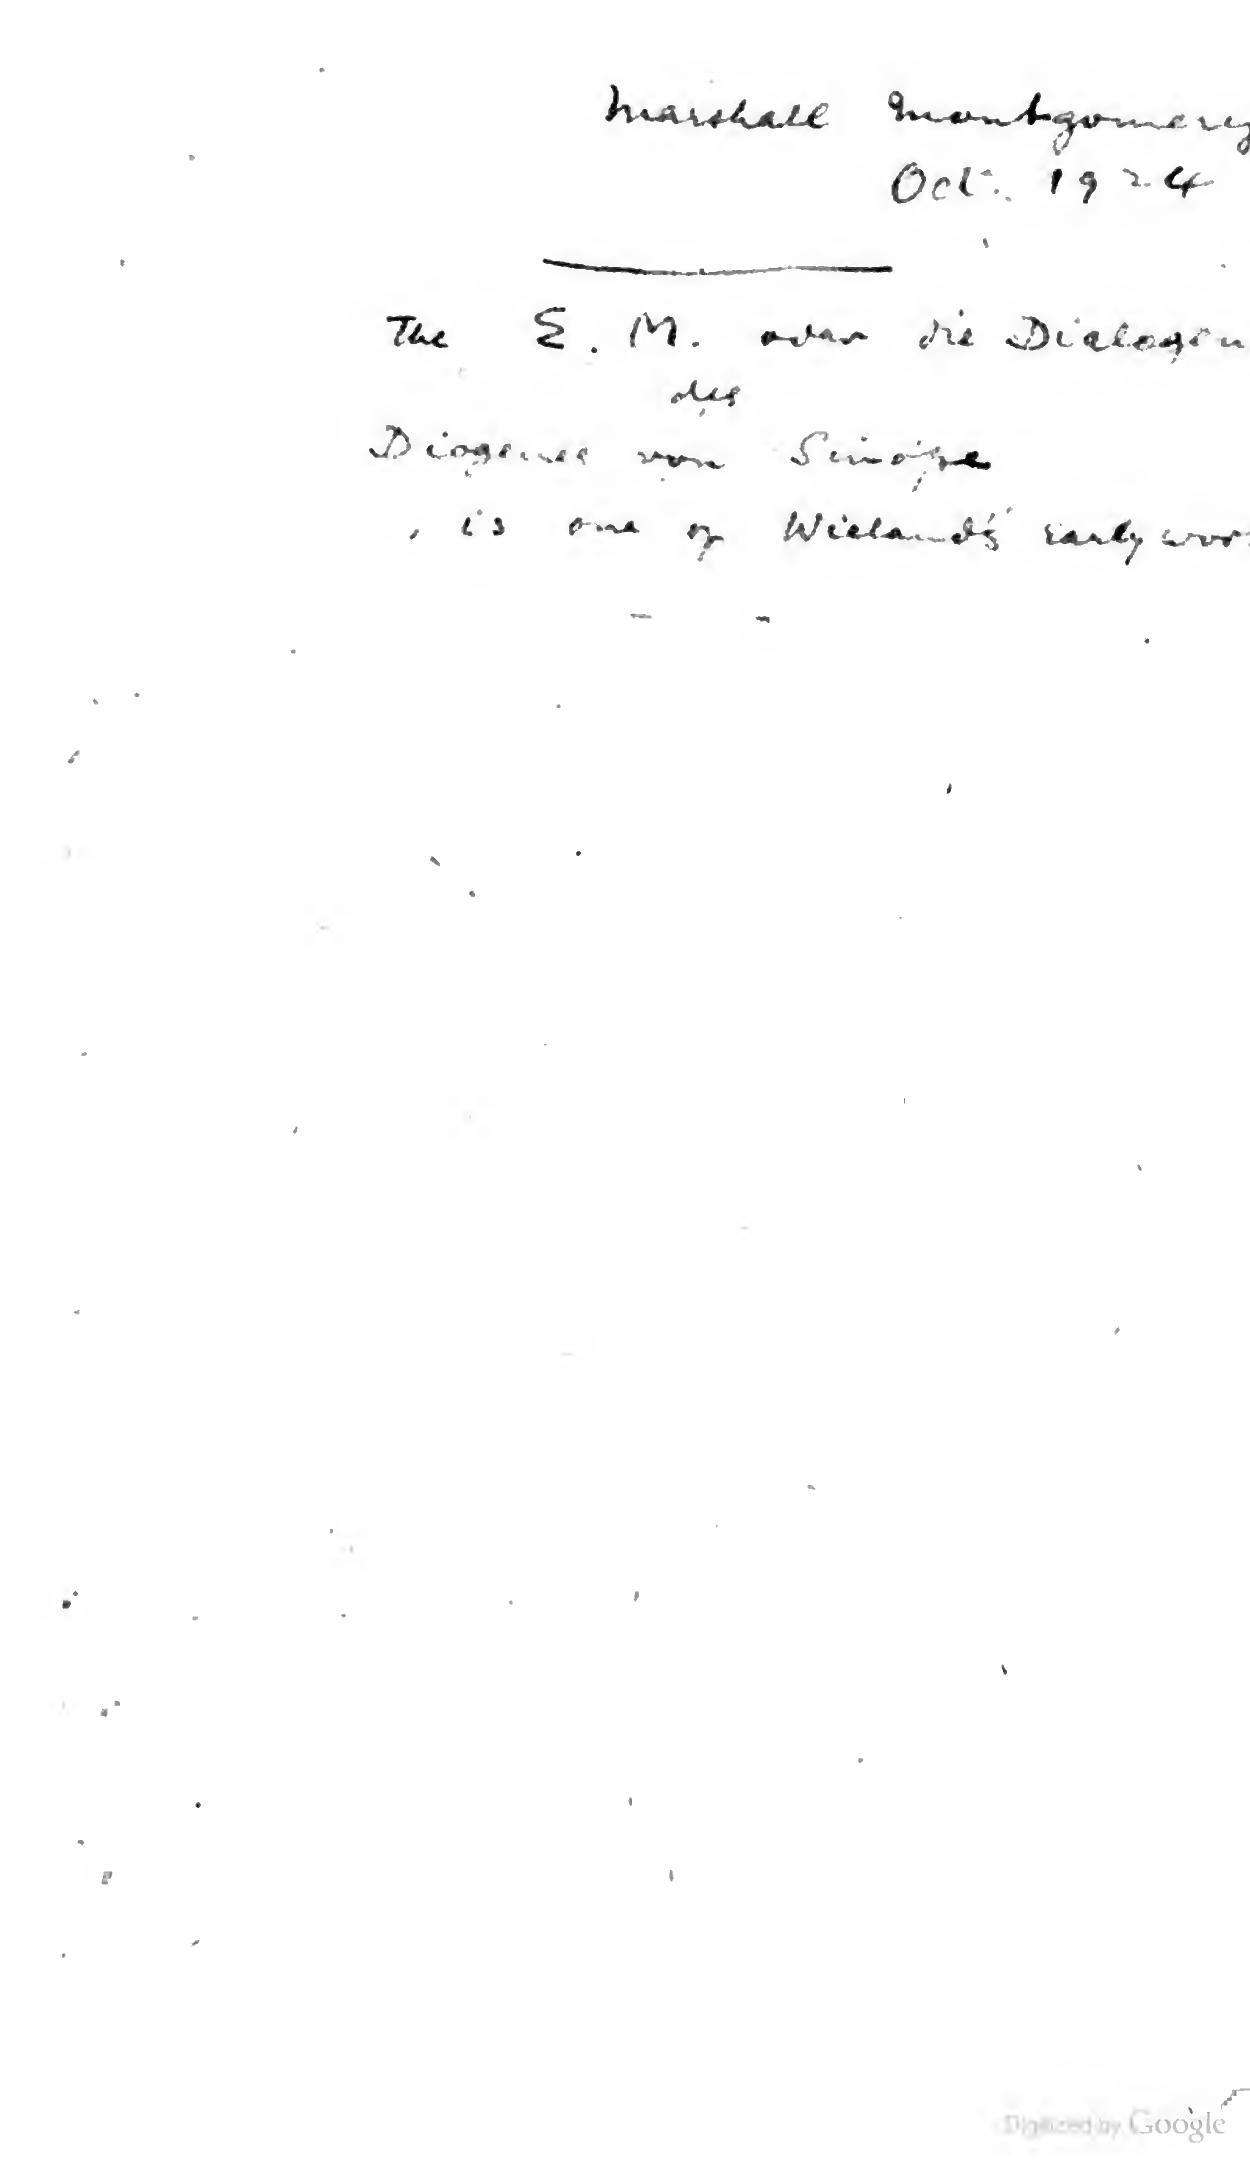 Marshall Montgomery
Oct. 1924
The Σ. M. oder die Dialogen
des
Diogenes von Sinope
, is one of Wieland's early wor
Digitized by Google